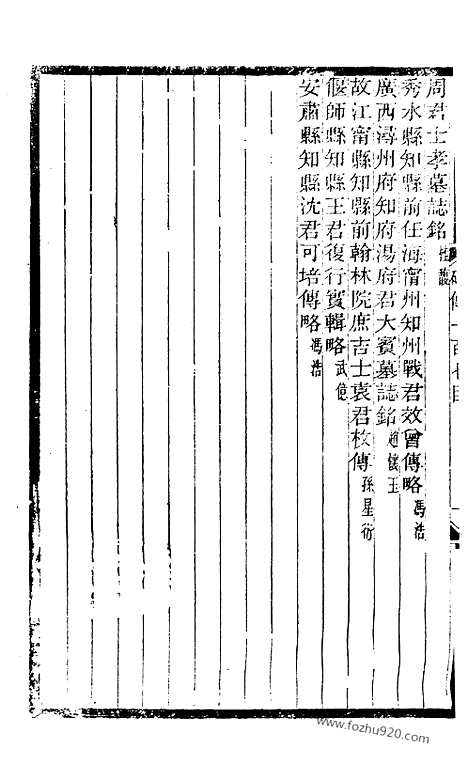 周君士孝墓誌銘 桂馥
秀水縣知縣前任海甯州知州戰君效曾傳略 馮浩
廣西潯州府知府湯府君大賓墓誌銘 趙懷玉
故江甯縣知縣前翰林院庶吉士袁君枚傳 孫星衍
偃師縣知縣王君復行實輯略 武億
安肅縣知縣沈君可培傳略 馮浩
www.fozhu920.com